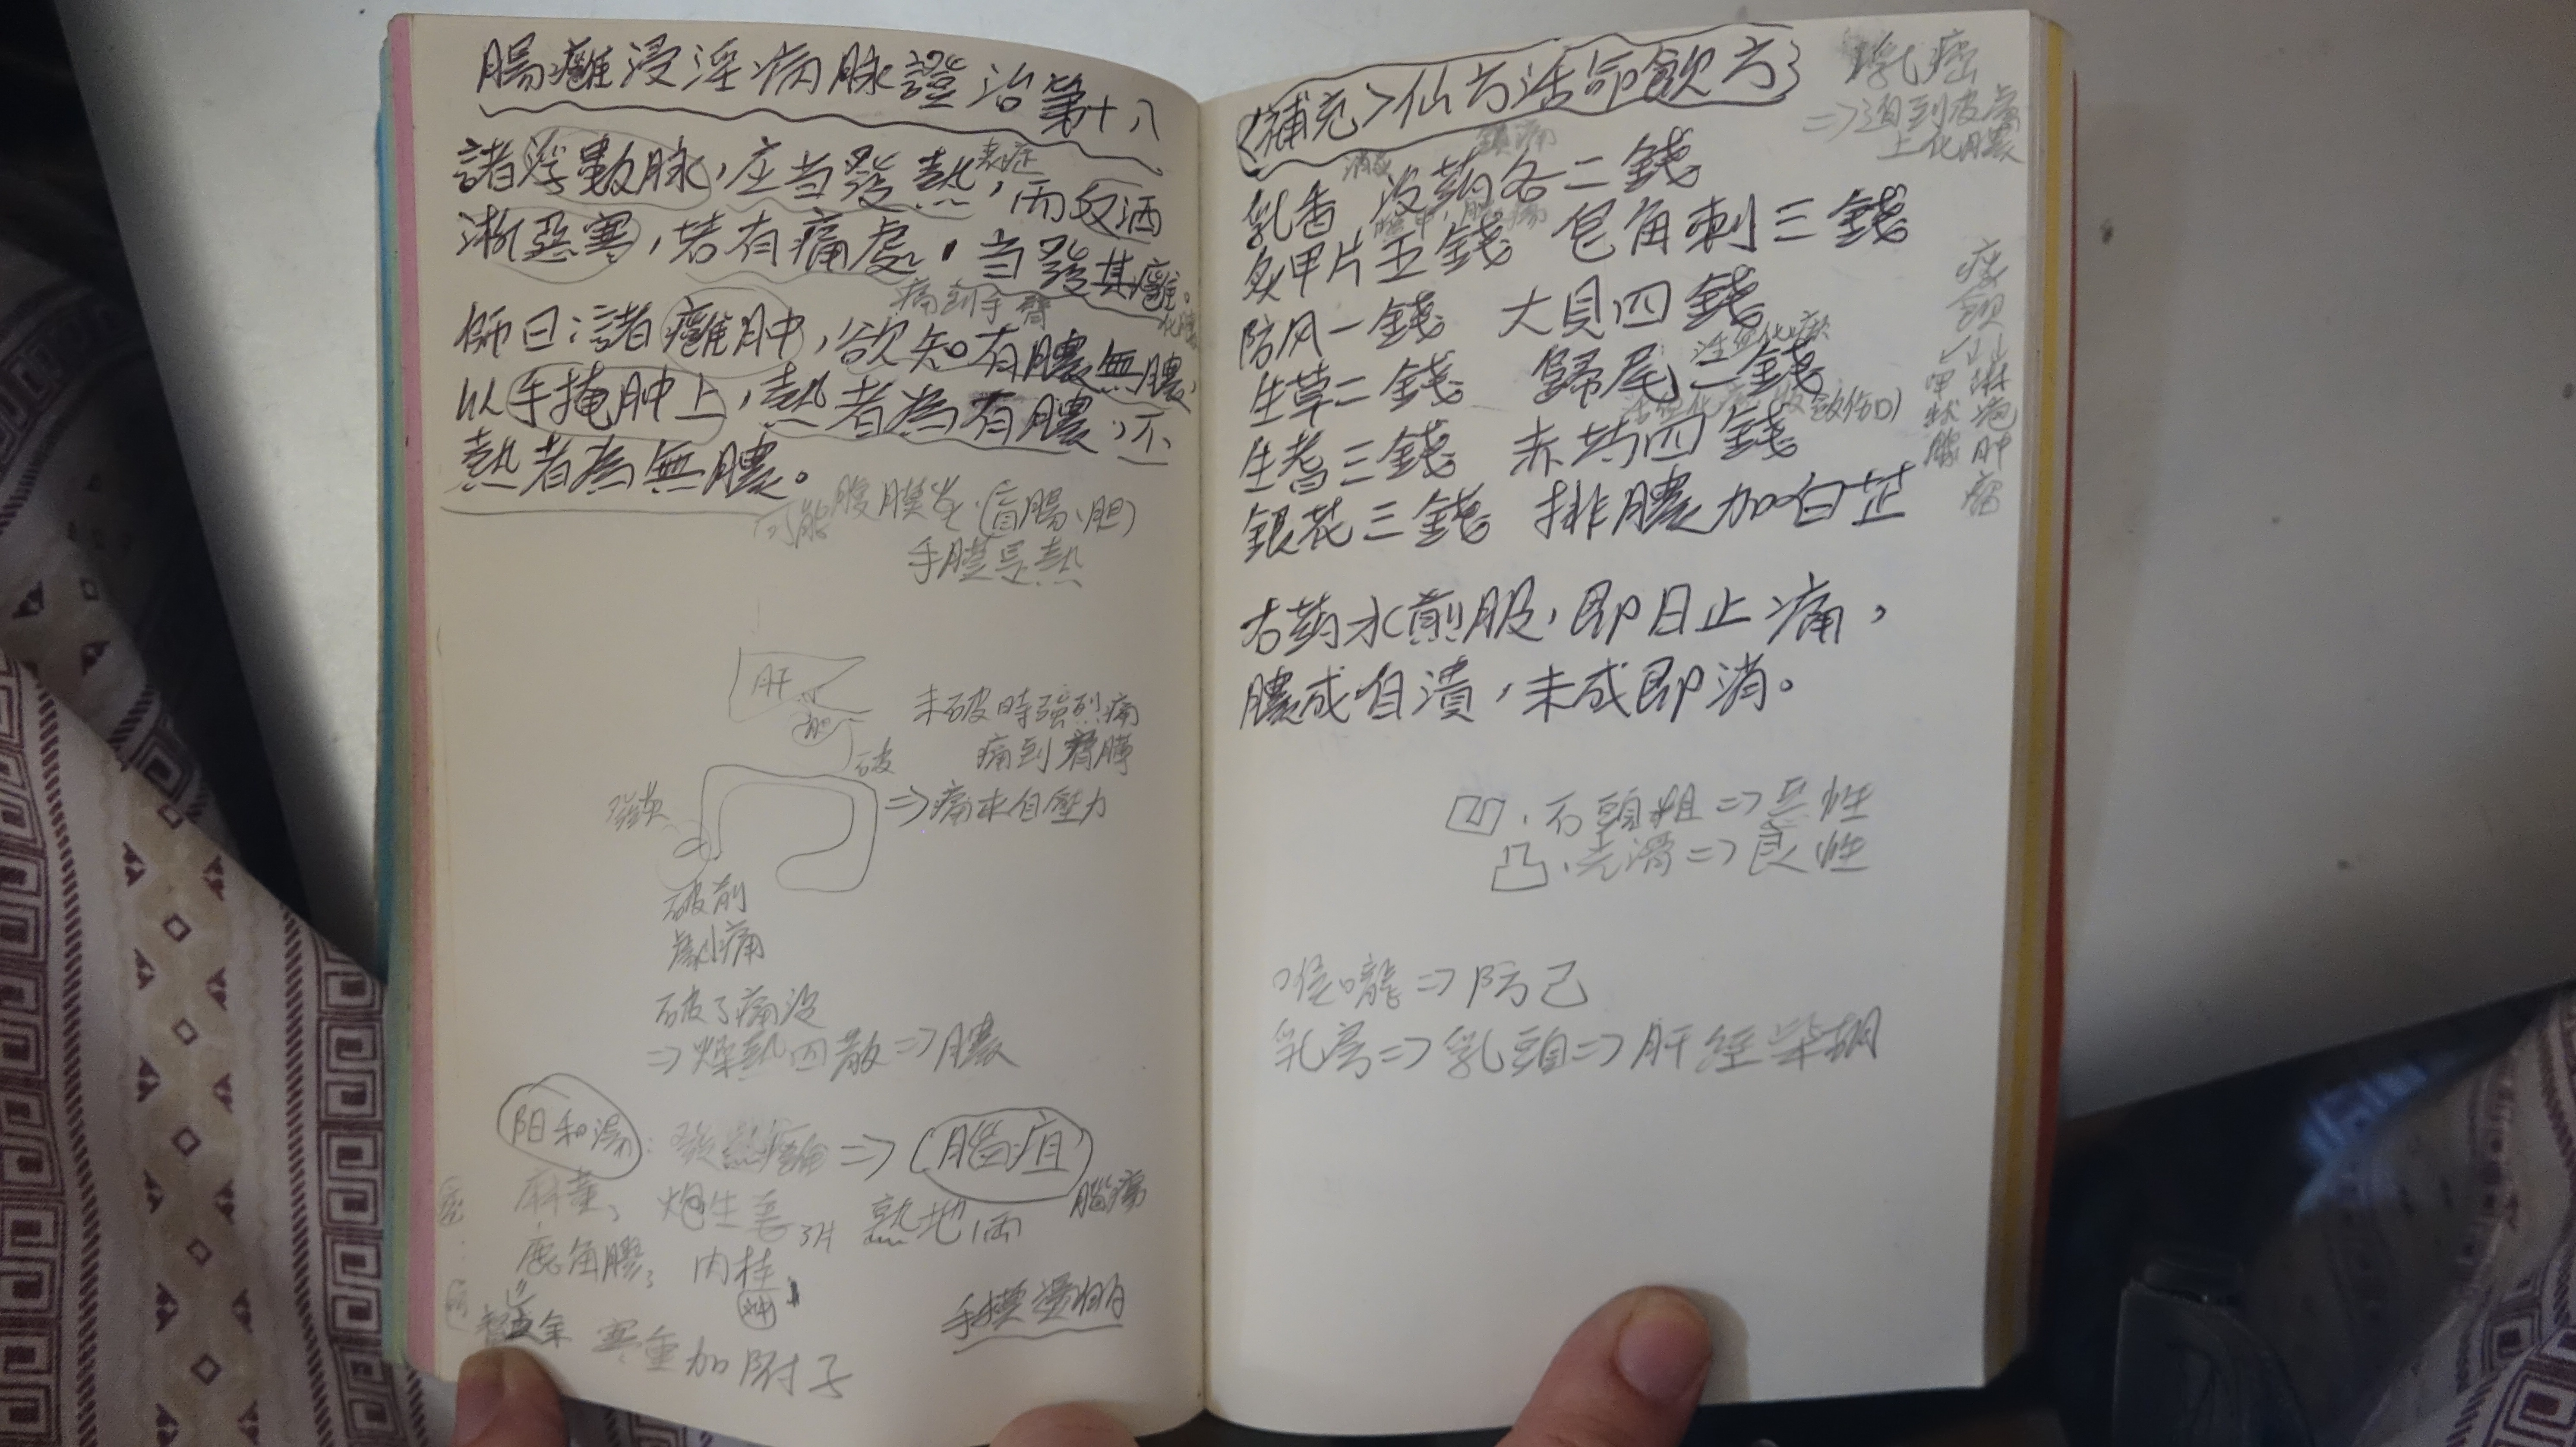 腸癰浸淫病脉證治第十八
諸浮數脉，应当發热，而反洒
淅惡寒，若有痛處，当發其癰。
表症
師曰：諸癰肿，欲知有膿無膿，
痛到手臂
以手掩肿上，热者為有膿，不
热者為無膿。
可能腹膜炎(盲腸、胆)
手摸是热
肝
胆
未破時強烈痛
痛到臂膊
破
⇒痛來自壓力
破前
破了痛没
⇒燥热四散⇒膿
阳和湯：⇒(腦疽)
腦瘍
麻黄、炮生姜 3片 熟地1兩
鹿角膠3 肉桂1
手摸
寒重加附子
<補充>仙方活命飲方
乳癌
⇒逼到皮膚
上化膿
鎮痛
乳香 没药各二錢
炙甲片五錢 皂角刺三錢
防风一錢 大貝四錢
活血化瘀
生草二錢 歸尾二錢
生耆三錢 赤芍四錢
銀花三錢 排膿加白芷
甲狀腺
淋巴肿瘤
右药水煎服，即日止痛，
膿成自潰，未成即消。
凹．石頭粗⇒惡性
凸．光滑⇒良性
喉嚨⇒防己
乳房⇒乳頭⇒肝經柴胡